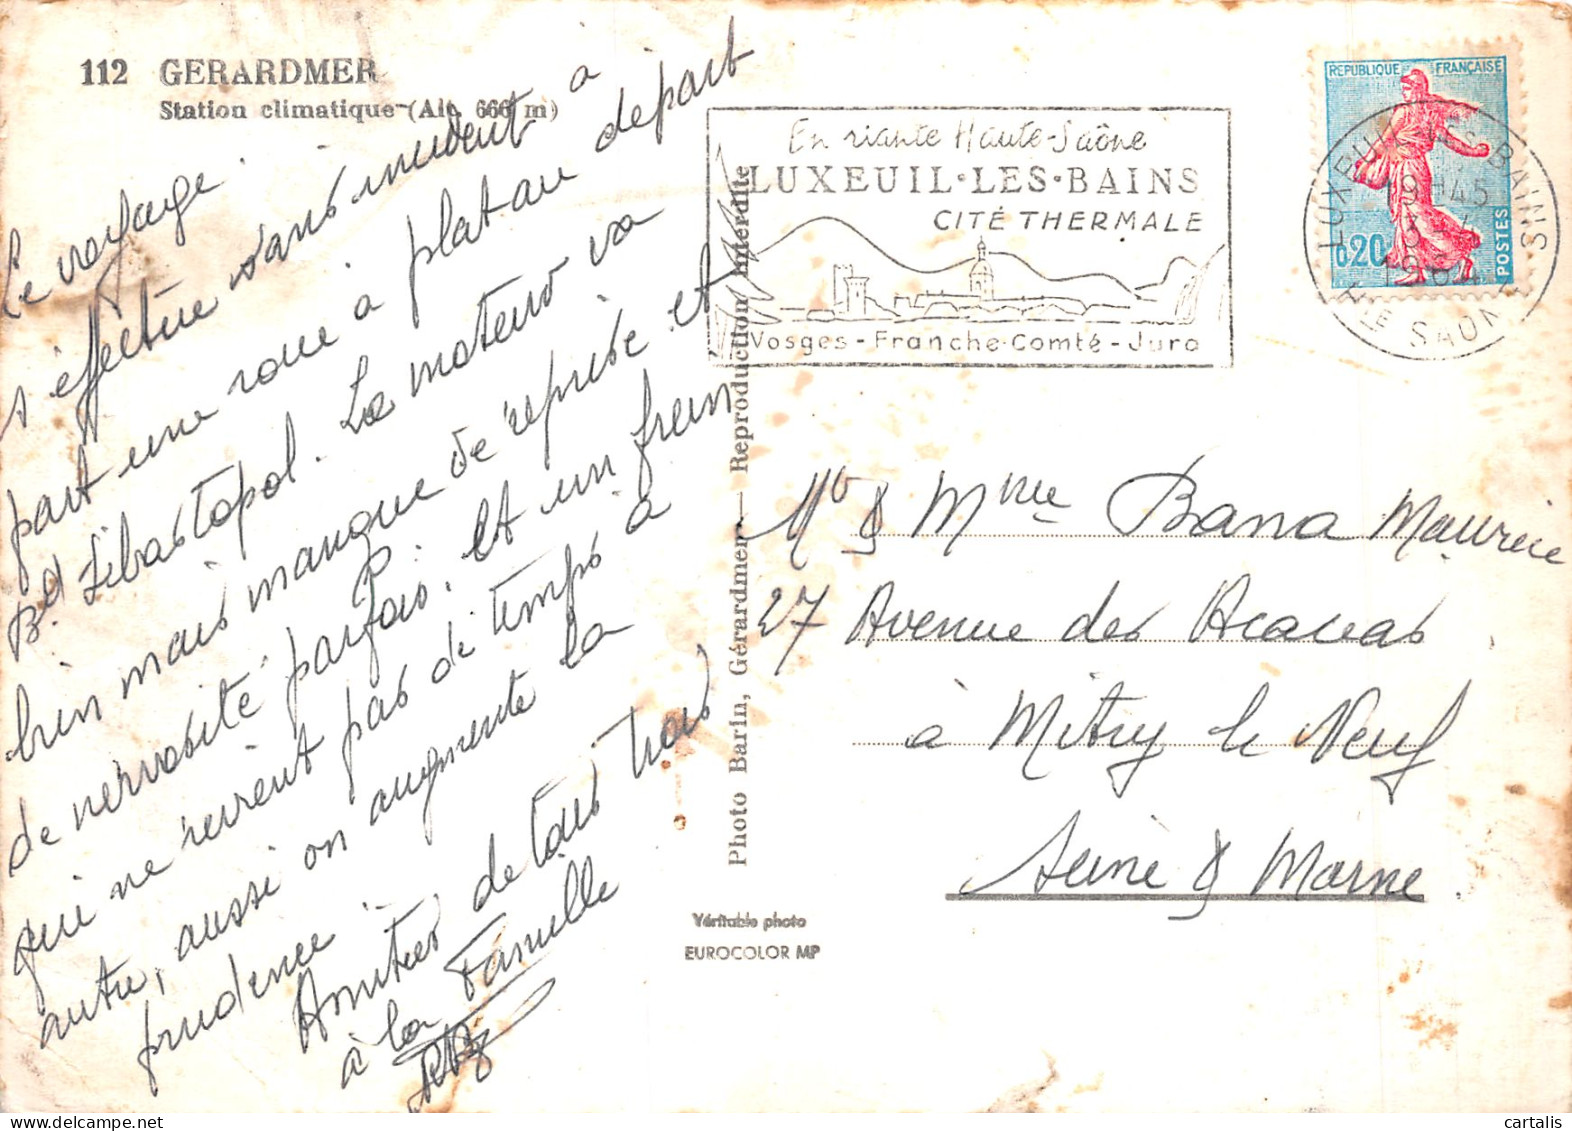 112 GERARDMER
Station climatique (Alt. 666 m)
Le voyage
s'effectue sans incident à
part une roue à plat au départ
Bd Sébastopol. Le moteur va
bien mais manque de reprise et
de nervosité parfois. Et un frein
qui ne revient pas de temps à
autre, aussi on augmente la
prudence.
Amitiés de tous trois
à la Famille
Photo Barin, Gérardmer — Reproduction interdite
Véritable photo
EUROCOLOR MP
En riante Haute-Saône
LUXEUIL·LES·BAINS
CITÉ THERMALE
Vosges - Franche-Comté - Jura
REPUBLIQUE FRANÇAISE
0,20
POSTES
LUXEUIL LES BAINS
19H45
1964
HTE SAONE
Mr & Mme Bana Maurice
27 Avenue des Acacias
à Mitry le Neuf
Seine & Marne
cartalis